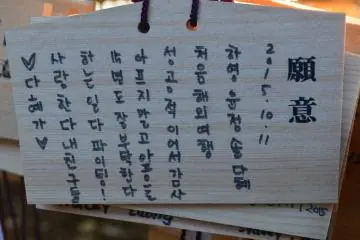 願意
2015.10.11
하영 윤정 송다혜
처음 해외여행
성공적이어서 감사
아프지말고 앞으로
16년도 잘부탁한다
하는일 다 파이팅!
사랑한다 내친구들
♡다혜가♡
2015